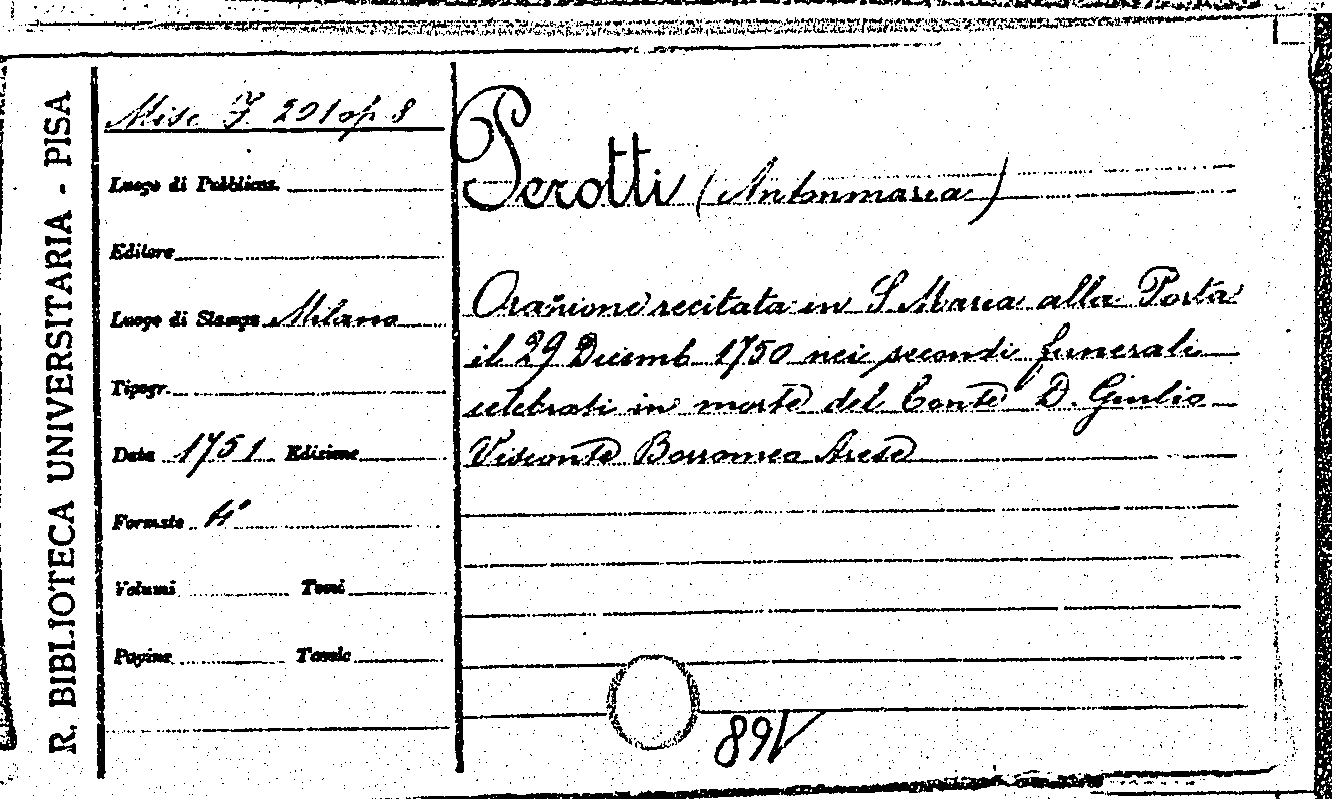 R. BIBLIOTECA UNIVERSITARIA - PISA
Misc F 201 op 8
Luogo di Pubblicaz.
Editore
Luogo di Stampa Milano
Tipogr.
Data 1751 Edizione
Formato 4°
Volumi Tomi
Pagine Tavole
Perotti (Antonmaria)
Orazione recitata in S. Maria alla Porta
il 29 Dicemb 1750 nei secondi funerali
celebrati in morte del Conte D. Giulio
Visconte Borromeo Arese
89V